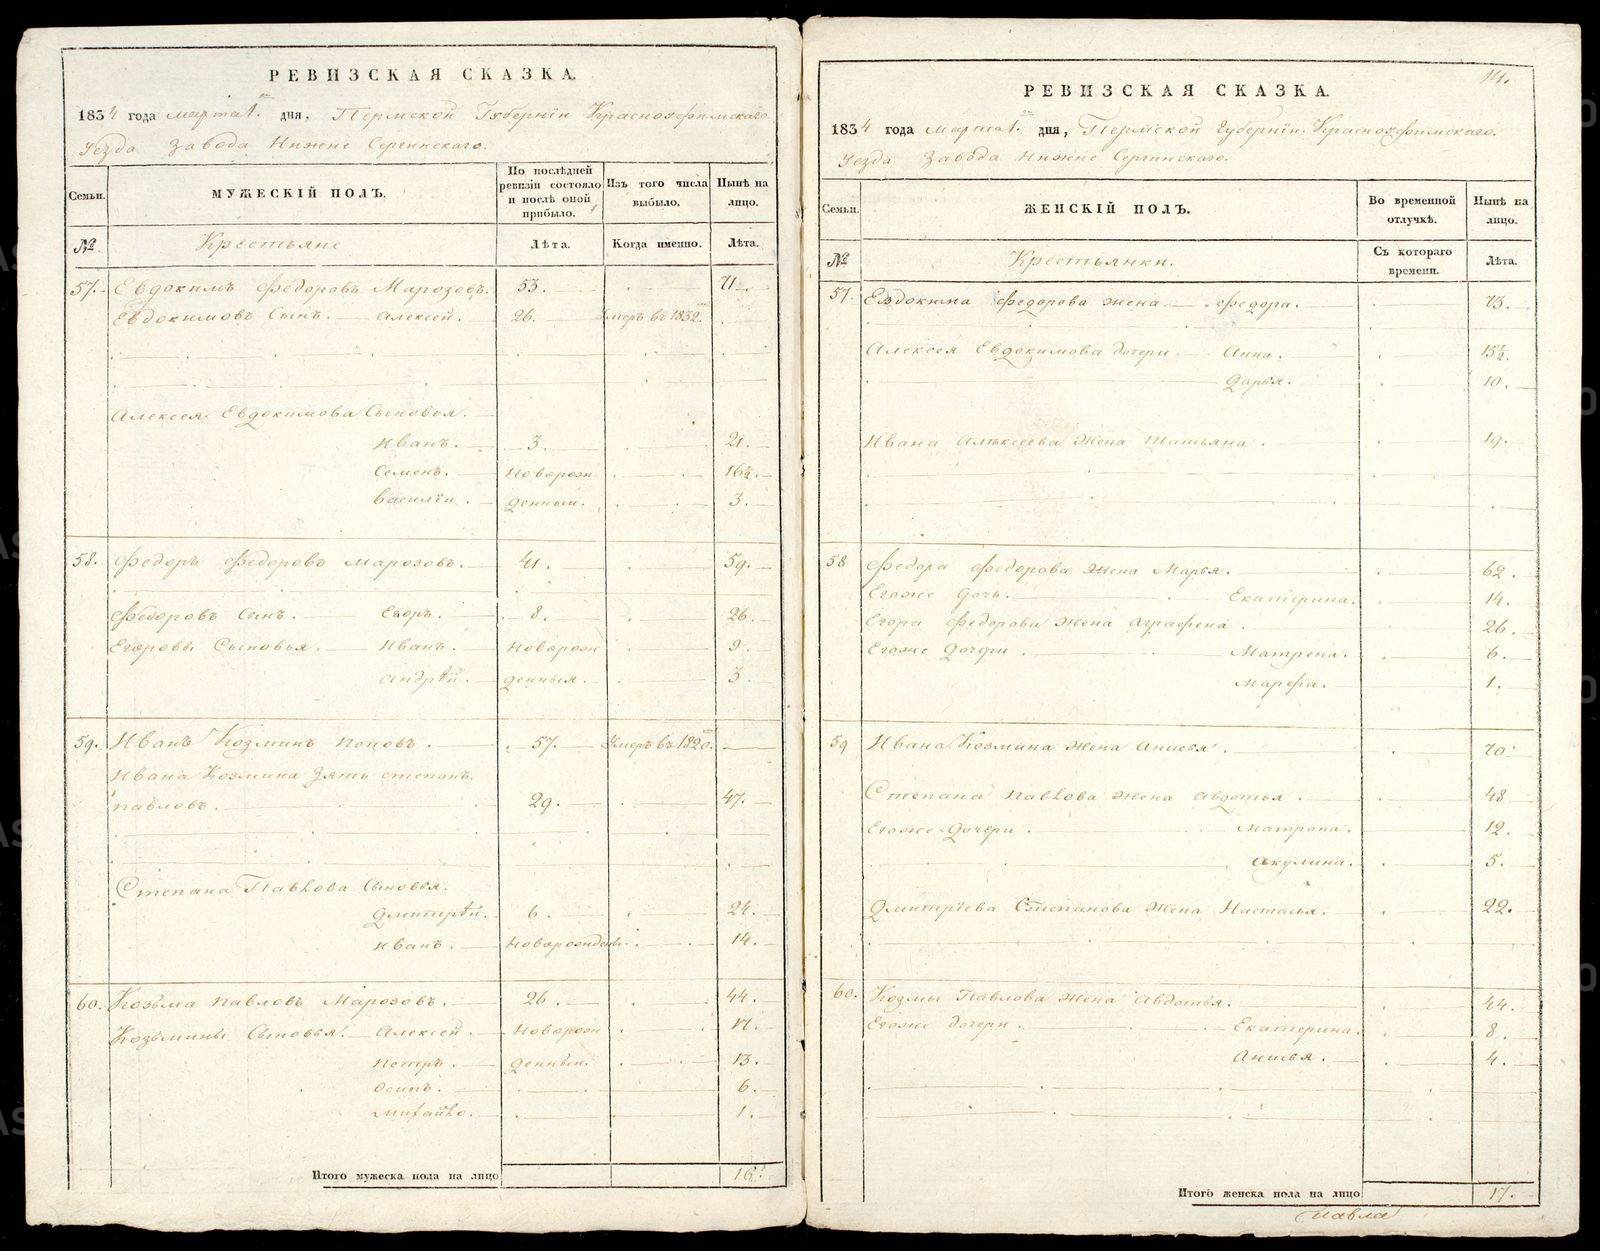 РЕВИЗСКАЯ СКАЗКА.
1834 года марта 1. дня, Пермской Губернiи Красноуфимскаго
Уезда Завода Нижне Сергинскаго.
Семьи. МУЖЕСКIЙ ПОЛЪ. По послѣдней ревизiи состояло и послѣ оной прибыло. Изъ того числа выбыло. Нынѣ на лицо.
№ Крестьяне Лѣта. Когда именно. Лѣта.
57. Евдокимъ Федоровъ Марозовъ. 53. 71.
Евдокимовъ Сынъ. Алексей. 26. Умеръ въ 1832.
Алексея Евдокимова Сыновья.
Иванъ. 3. 21.
Семенъ. Новорож 16½.
Василiй. денныи. 3.
58. Федоръ Федоровъ Марозовъ. 41. 59.
Федоровъ Сынъ. Егоръ. 8. 26.
Егоровы Сыновья. Иванъ. Новорож 9.
Андрѣй. денныя. 3.
59. Иванъ Козминъ Поповъ. 57. Умеръ въ 1820.
Ивана Козмина Зять Степанъ
Павловъ. 29. 47.
Степана Павлова Сыновья.
Дмитрѣй. 6. 24.
Иванъ. Новорожден. 14.
60. Козьма Павловъ Марозовъ. 26. 44.
Козьмины Сыновья. Алексей. Новорож 17.
Петръ. денныи. 13.
Осипъ. 6.
Михайло. 1.
Итого мужеска пола на лицо 16.
14.
РЕВИЗСКАЯ СКАЗКА.
1834 года марта 1. дня, Пермской Губернiи Красноуфимскаго.
Уезда Завода Нижне Сергинскаго.
Семьи. ЖЕНСКIЙ ПОЛЪ. Во временной отлучкѣ. Нынѣ на лицо.
№ Крестьянки. Съ котораго времени. Лѣта.
57. Евдокима Федорова жена. Федора. 73.
Алексея Евдокимова дочери. Анна. 15½.
Дарья. 10.
Ивана Алексеева Жена Татьяна. 19.
58 Федора Федорова Жена Марья. 62.
Егоже Дочь. Екатерина. 14.
Егора Федорова Жена Аграфена. 26.
Егоже Дочери. Матрена. 6.
Марфа. 1.
59 Ивана Козмина Жена Анисья. 70.
Степана Павлова Жена Авдотья. 48
Егоже Дочери. Матрона. 12.
Акулина. 5.
Дмитрiева Степанова Жена Настасья. 22.
60. Козмы Павлова Жена Авдотья. 44.
Егоже дочери. Екатерина. 8.
Анисья. 4.
Итого женска пола на лицо 17.